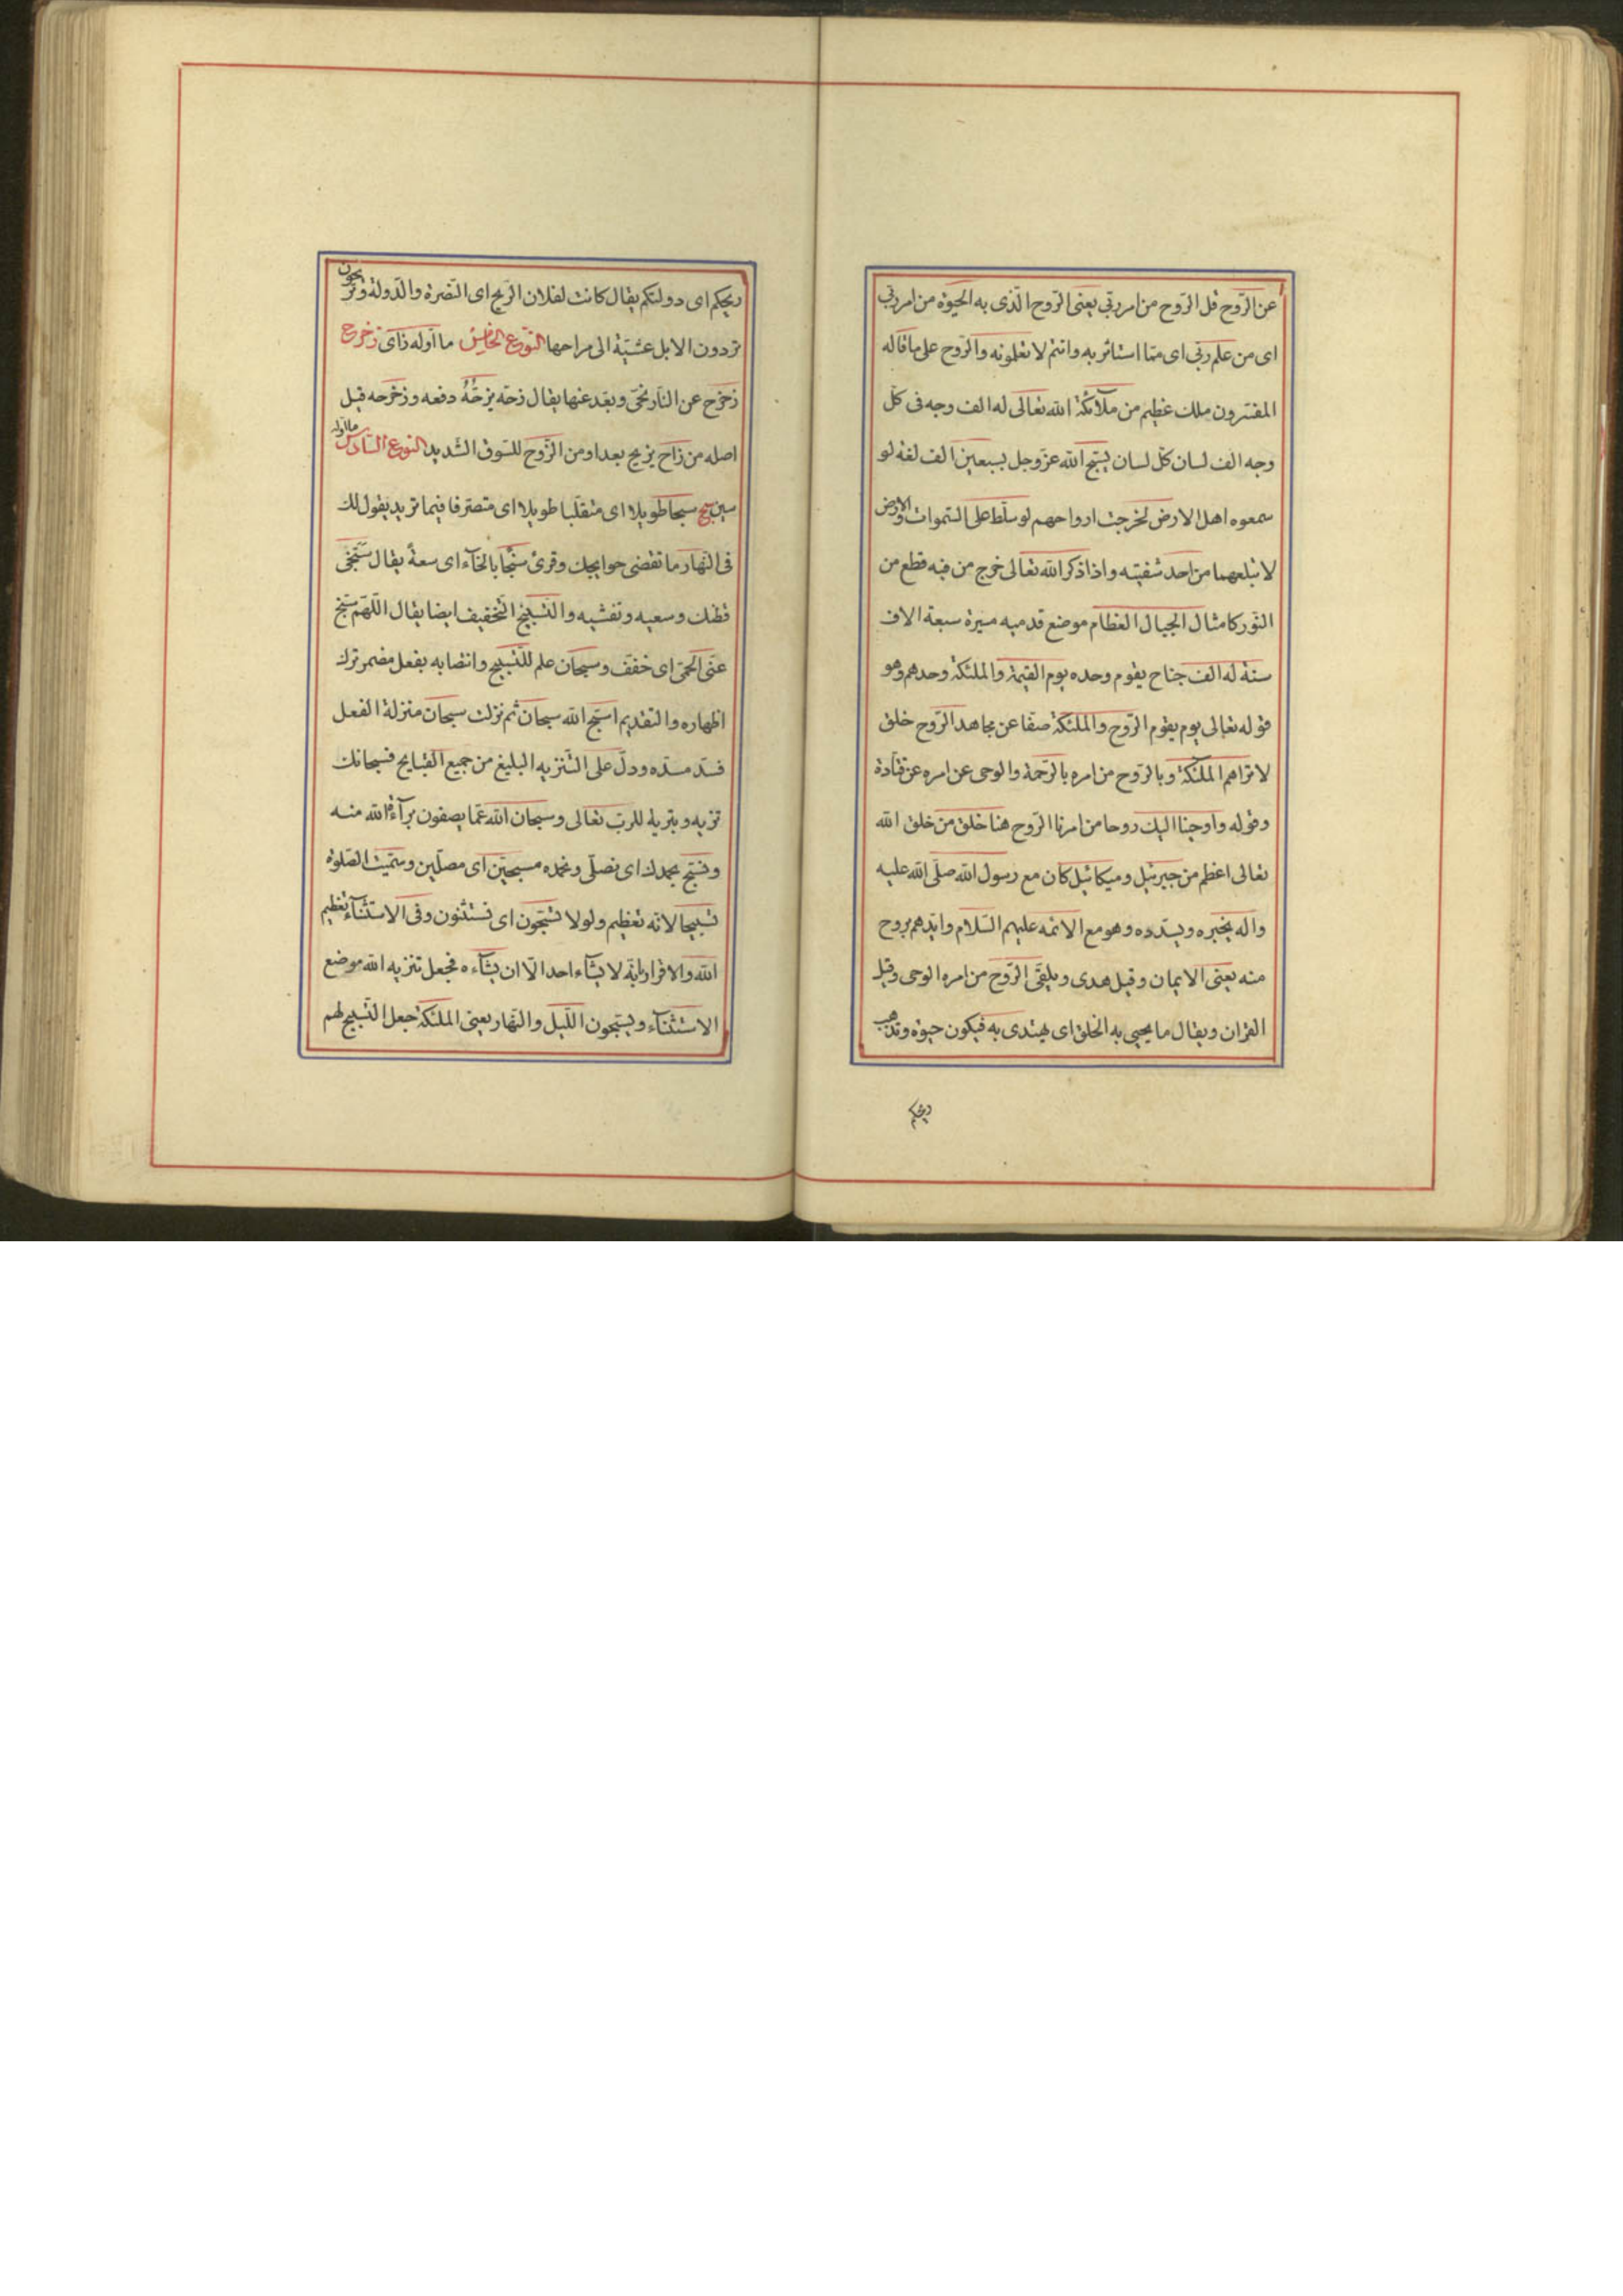 عن الرّوح قل الرّوح من امر ربّي يعنى الرّوح الّذى به الحيوة من امر ربّي
اى من علم ربّي اى ممّا استاثر به وانتم لا تعلمونه والرّوح على ما قاله
المفسّرون ملك عظيم من ملآئكة الله تعالى له الف وجه فى كلّ
وجه الف لسان كلّ لسان يسبّح الله عزّ وجل بسبعين الف لغة لو
سمعوه اهل الارض لخرجت ارواحهم لو سلّط على السّموات والارض
لابتلعهما من احد شفتيه واذا ذكر الله تعالى خرج من فيه قطع من
النّور كامثال الجبال العظام موضع قدميه مسيرة سبعة الاف
سنة له الف جناح يقوم وحده يوم القيمة والملئكة وحدهم وهو
قوله تعالى يوم يقوم الرّوح والملئكة صفّا عن مجاهد الرّوح خلق
لا تراهم الملئكة وبالرّوح من امره بالرّحمة والوحى عن امره عن قتادة
وقوله واوحينا اليك روحا من امرنا الرّوح هنا خلق من خلق الله
تعالى اعظم من جبرئيل وميكائيل كان مع رسول الله صلّى الله عليه
واله يخبره ويسدّده وهو مع الائمه عليهم السّلام وايّدهم بروح
منه يعنى الايمان وقيل هدى ويلقى الرّوح من امره الوحى وقيل
القران ويقال ما يحيى به الخلق اى يهتدى به فيكون حيوة وتذهب
ريحكم
ريحكم اى دولتكم يقال كانت لفلان الرّيح اى النّصرة والدّولة وتريحون
تردون الابل عشيّة الى مراحها النّوع الخامس ما اوّله زآى زحزح
زحزح عن النّار نحّى وبعّد عنها يقال زحّه يزحّه دفعه وزحزحه قيل
اصله من زاح يزيح بعد او من الزّوح للسّوق الشّديد النوع السّادس ما اوّله
سين سبح سبحا طويلا اى متقلّبا طويلا اى متصرّفا فيما تريد يقول لك
فى النّهار ما تقضى حوايجك وقرئ سبخا بالخآء اى سعة يقال سبّخى
قطنك وسعيه ونفشيه والتّسبيخ التّخفيف ايضا يقال اللّهمّ سبّخ
عنّى الحمّى اى خفّف وسبحان علم للتّسبيح وانتصابه بفعل مضمر ترك
اظهاره والتقديم اسبّح الله سبحان ثم نزلت سبحان منزلة الفعل
فسدّ مسدّه ودلّ على التّنزيه البليغ من جميع القبايح فسبحانك
تنزيه وتبرية للرب تعالى وسبحان الله عمّا يصفون برآءة الله منه
ونسبّح بحمدك اى نصلّى ونحمده مسبحين اى مصلّين وسمّيت الصّلوة
تسبيحا لانه تعظيم ولولا تسبّحون اى تستثنون وفى الاستثنآء تعظيم
الله والاقرار بانّه لا يشآء احد الّا ان يشآءه فجعل تنزيه الله موضع
الاستثنآء ويسبّحون اللّيل والنّهار يعنى الملئكة جعل التّسبيح لهم